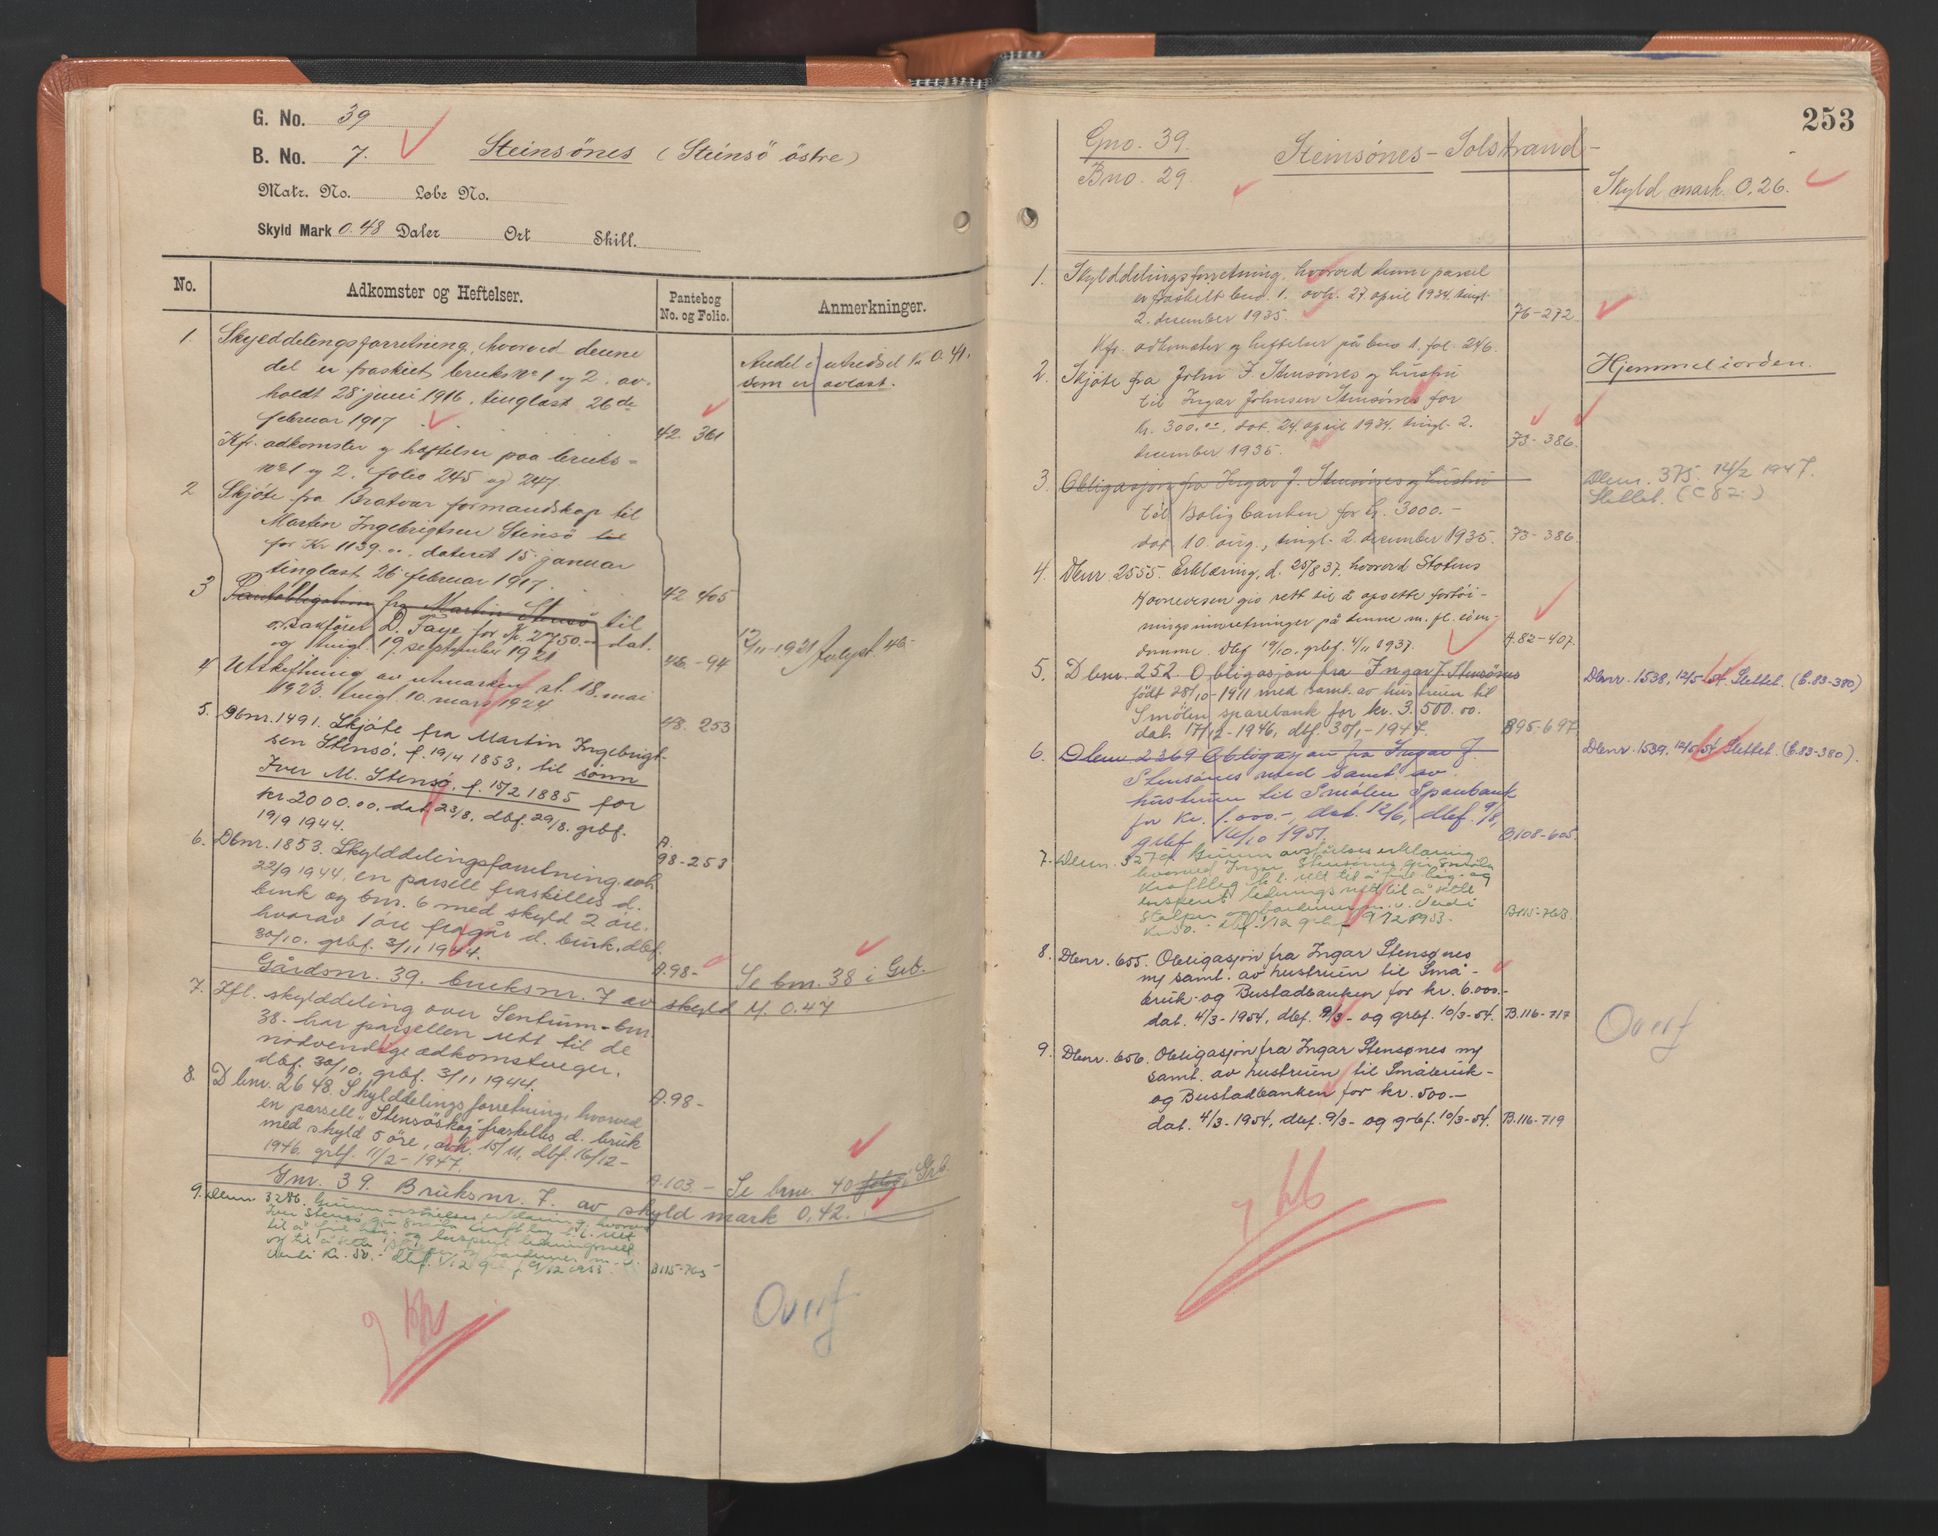 G. No. 39
B. No. 7. Steinsönes (Steinsö östre)
Matr. No. Løbe No.
Skyld Mark 0.48 Daler Ort Skill.
No. Adkomster og Heftelser. Pantebog No. og Folio. Anmerkninger.
1. Skylddelingsforretning, hvorved denne
del er fraskilt bruks No 1 og 2, av-
holdt 28 juni 1916, tinglæst 26de
februar 1917. 42. 361
Andel i utredsel kr 0.41.
som er avløst.
Kfr. adkomster og heftelser paa bruks-
No 1 og 2, folio 245 og 247
2 Skjöte fra Bratvær formandskap til
Martin Ingebrigtsen Stensö
for Kr 1139.00, dateret 15. januar
tinglæst 26 februar 1917. 42 405
3 Panteobligation fra Martin Stensö til
o.r.sakförer D. Faye for Kr. 2750.00 dat.
og tingl. 19. september 1921 46-94
12/11-1921 Avlyst. 46-
4 Utskiftning av utmarken sl. 18. mai
1923. tingl. 10. mars 1924 48. 253
5. Dbnr. 1491. Skjöte fra Martin Ingebrigt-
sen Stensö, f. 19/4 1853, til sönn
Iver M. Stensö, f. 15/2 1885 for
kr 2000.00, dat. 23/8, dbf. 29/8. grbf.
19/9 1944. A. 98-253
6. Dbnr. 1853. Skylddelingsforretning, avh.
22/9 1944. en parsell fraskilles d.
bruk og bnr. 6 med skyld 2 öre,
hvorav 1 öre fragår d. bruk, dbf.
30/10. grbf. 3/11 1944. A.98-
Se bnr. 38 i Grb.
Gårdsnr. 39. bruksnr. 7 av skyld M. 0.47
7. Ifl. skylddeling over Sentrum-bnr.
38- har parsellen rett til de
nödvendige adkomstveger.
dbf. 30/10. grbf. 3/11 1944. A.98-
8. Dbnr. 2648. Skylddelingsforretning, hvorved
en parsell "Stensöskog" fraskilles d. bruk
med skyld 5 öre, avh. 15/11, dbf. 16/12-
1946. grbf. 11/2-1947. A.103.-
Se bnr. 40 i Grb.
Gnr. 39. Bruksnr. 7. av skyld mark 0,42.
9. Dbnr 3286. Grunnavståelseserklæring, hvorved
Iver Stensö gir Smöla Kraftlag t. l. rett
til å
og til å sette stolper og barduner m. v.
Verdi Kr. 50.- dbf. 1/12 grbf 9/12 1953. B115-765
Overf
253
Gno. 39. Steinsönes-Solstrand-
Bno. 29.
Skyld mark. 0,26.
1. Skylddelingsforretning, hvorved denne parsel
er fraskilt bno. 1. avh. 27. april 1934. tingl.
2. december 1935. 76-272.
Kfr. adkomster og heftelser på bno 1. fol. 246.
Hjemmel i orden.
2. Skjøte fra John I. Stensønes og hustru
til Ingar Johnsen Stensønes for
kr. 300.00, dat. 24. april 1934. tingl. 2.
december 1935. 73-386.
3. Obligasjon fra Ingar J. Stensønes og hustru
til Boligbanken for kr. 3000.-
dat. 10. aug., tingl. 2. december 1935. 73-386.
Dbnr. 375. 14/2 1947.
Slettet. (C 82:)
4. Dbnr. 2555. Erklæring, d. 25/8 37, hvorved Statens
Havnevesen gis rett til å opsette fortöi-
ningsinnretninger på denne m. fl. eien-
domme. Dbf 19/10. grbf. 4/11 1937. A.82-407.
5. Dbnr. 252. Obligasjon fra Ingar J. Stensønes
født 28/10-1911 med samt. av hustruen til
Smølen sparebank for kr. 3.500.00.
dat. 17/12-1946, dbf. 30/1-1947. B95-697
Dbnr. 1538, 12/5-54. Slettet. (E.83-380)
6. Dbnr 2369 Obligasjon fra Ingar J.
Stensønes med samt. av
hustruen til Smølen Sparebank
for kr. 1.000.-, dat. 12/6, dbf. 9/8,
grbf 16/10 1951. B108-605
Dbnr. 1539, 12/5 54. Slettet. (E.83-380).
7. Dbnr. 3279. Grunnavståelseserklæring
hvorved Ingar Stensønes gir Smöla
Kraftlag t. l. rett til å
ledningsrett til å sette
Stolper og barduner m. v. Verdi
Kr. 50.- dbf. 1/12 grbf 9/12 1953. B115-763.
8. Dbnr. 655. Obligasjon fra Ingar Stensønes
m/ samt. av hustruen til Små-
bruk- og Bustadbanken for kr. 6.000.-
dat. 4/3-1954, dbf. 9/3- og grbf. 10/3-54. B.116-717
Overf
9. Dbnr. 656. Obligasjon fra Ingar Stensønes m/
samt. av hustruen til Småbruk-
og Bustadbanken for kr. 500.-
dat. 4/3-1954, dbf. 9/3- og grbf. 10/3-54. B.116-719